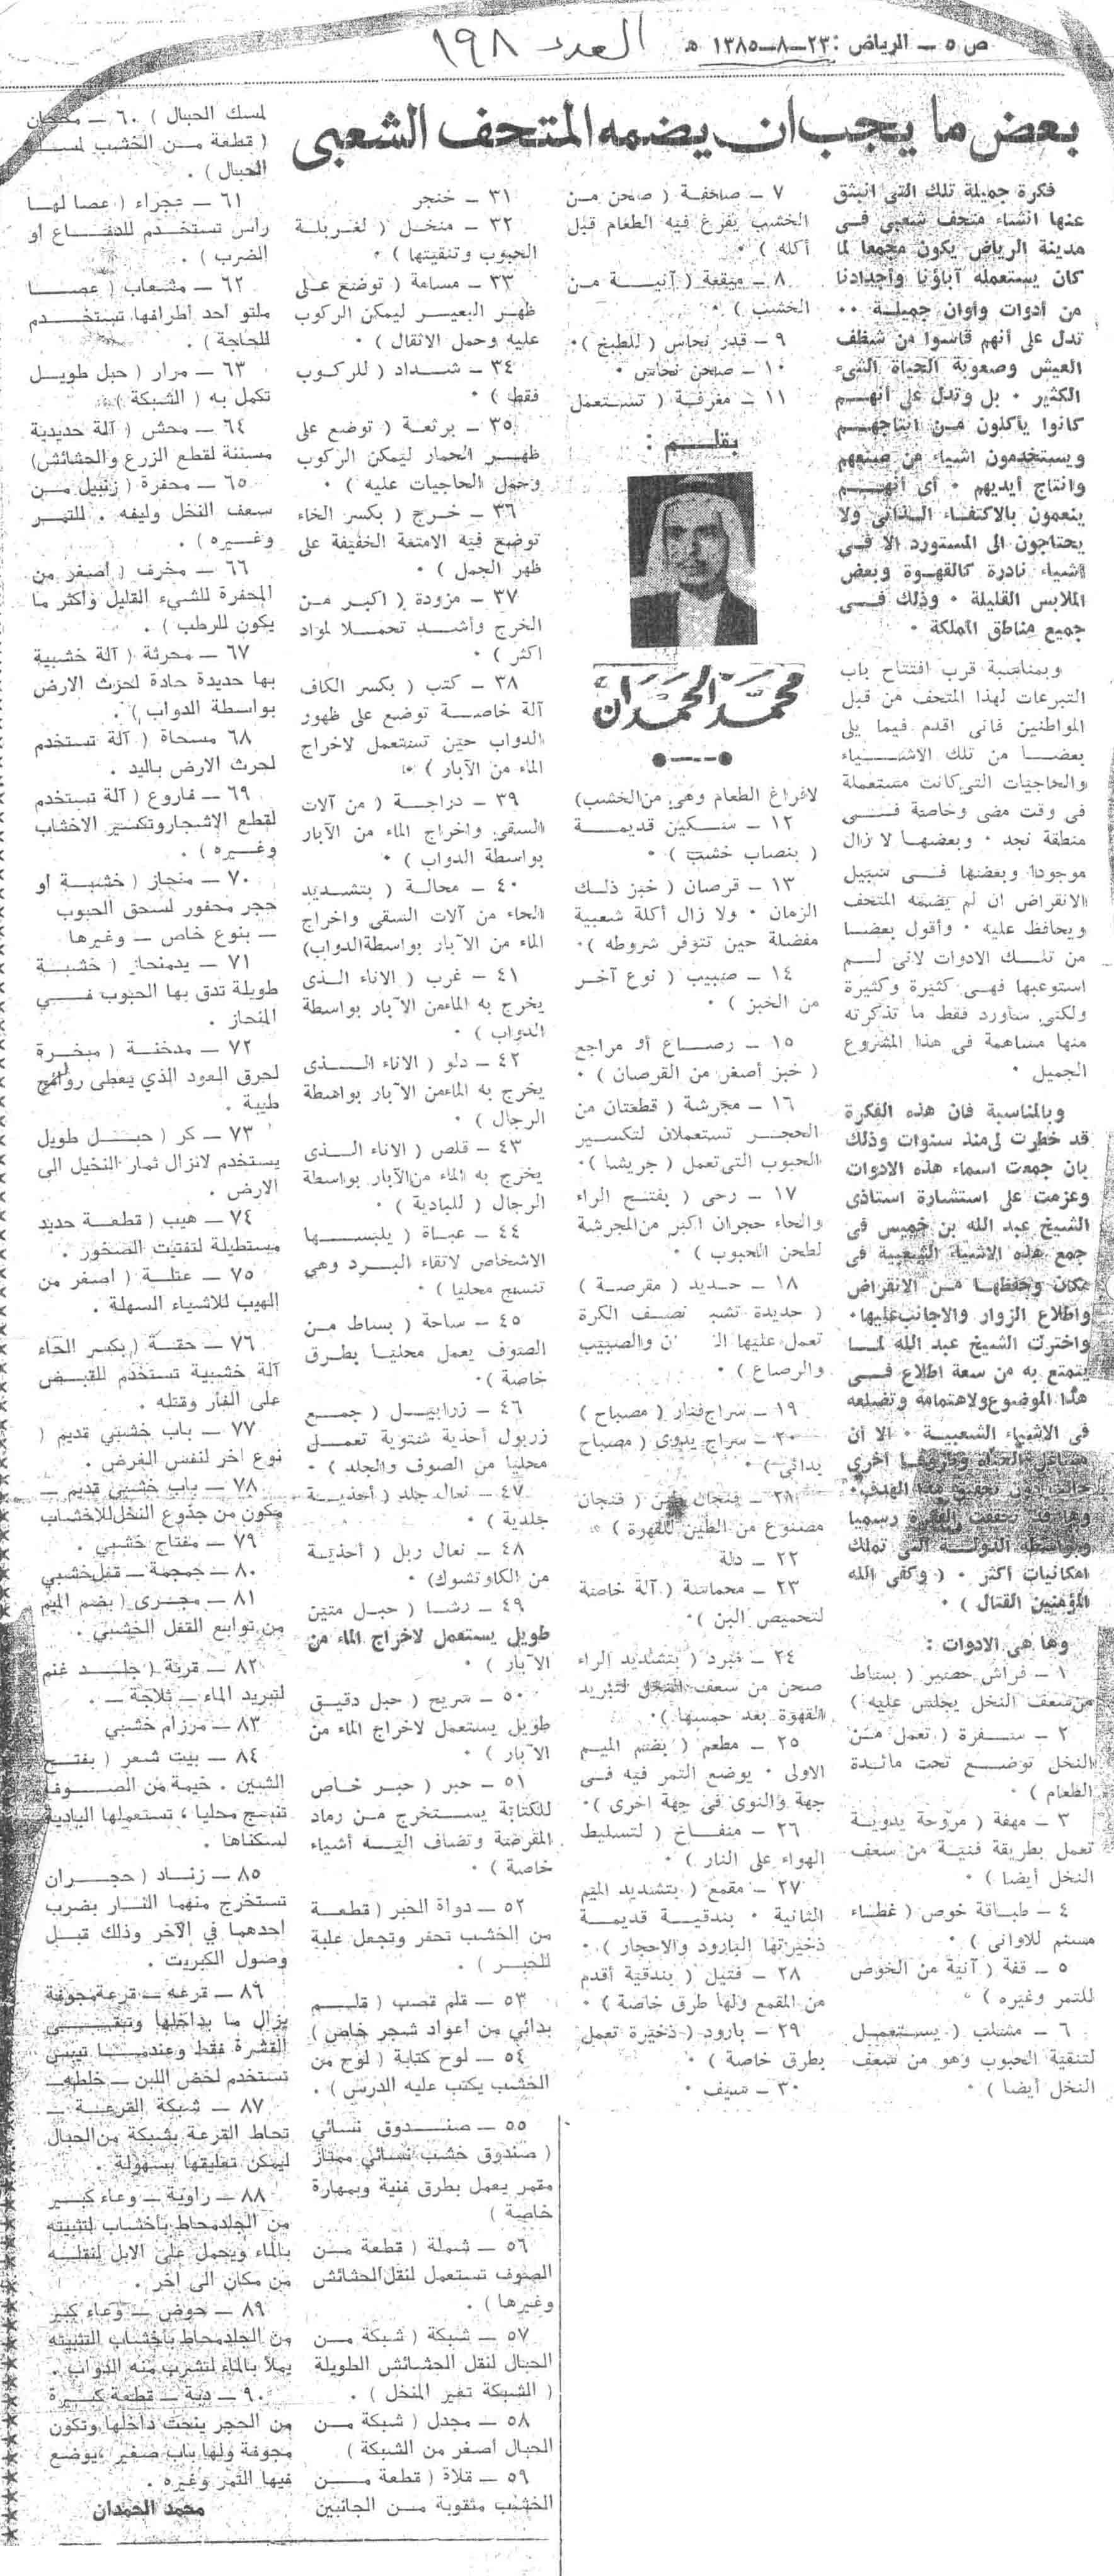 ص ٥ – الرياض : ٢٣–٨–١٣٨٥ هـ
العدد ١٩٨
بعض ما يجب ان يضمه المتحف الشعبى
فكرة جميلة تلك التى انبثق
عنها انشاء متحف شعبى فى
مدينة الرياض يكون مجمعا لما
كان يستعمله آباؤنا وأجدادنا
من أدوات وأوان جميلة ٠٠
تدل على أنهم قاسوا من شظف
العيش وصعوبة الحياة الشىء
الكثير ٠ بل وتدل على أنهم
كانوا يأكلون من انتاجهم
ويستخدمون اشياء من صنعهم
وانتاج أيديهم ٠ أى أنهم
ينعمون بالاكتفاء الذاتى ولا
يحتاجون الى المستورد الا فى
اشياء نادرة كالقهوة وبعض
الملابس القليلة ٠ وذلك فى
جميع مناطق المملكة ٠
وبمناسبة قرب افتتاح باب
التبرعات لهذا المتحف من قبل
المواطنين فانى اقدم فيما يلى
بعضا من تلك الاشياء
والحاجيات التى كانت مستعملة
فى وقت مضى وخاصة فى
منطقة نجد ٠ وبعضها لا زال
موجودا وبعضها فى سبيل
الانقراض ان لم يضمه المتحف
ويحافظ عليه ٠ وأقول بعضا
من تلك الادوات لانى لم
استوعبها فهى كثيرة وكثيرة
ولكنى سأورد فقط ما تذكرته
منها مساهمة فى هذا المشروع
الجميل ٠
وبالمناسبة فان هذه الفكرة
قد خطرت لى منذ سنوات وذلك
بان جمعت اسماء هذه الادوات
وعزمت على استشارة استاذى
الشيخ عبد الله بن خميس فى
جمع هذه الاشياء الشعبية فى
مكان وحفظها من الانقراض
واطلاع الزوار والاجانب عليها ٠
واخترت الشيخ عبد الله لما
يتمتع به من سعة اطلاع فى
هذا الموضوع ولاهتمامه وتضلعه
فى الاشياء الشعبية ٠ الا أن
مشاغل الحياة وظروفها اخرى
حالت دون تحقيق هذا الهدف ٠
وها قد تحققت الفكرة رسميا
وبواسطة الدولة التى تملك
امكانيات أكثر ٠ ( وكفى الله
المؤمنين القتال ) ٠
وها هى الادوات :
١ – فراش حصير ( بساط
من سعف النخل يجلس عليه )
٢ – سفرة ( تعمل من
النخل توضع تحت مائدة
الطعام ) ٠
٣ – مهفة ( مروحة يدوية
تعمل بطريقة فنية من سعف
النخل أيضا ) ٠
٤ – طباقة خوص ( غطاء
مسنم للاوانى ) ٠
٥ – قفة ( آنية من الخوص
للتمر وغيره ) ٠
٦ – مشلب ( يستعمل
لتنقية الحبوب وهو من سعف
النخل أيضا ) ٠
٧ – صاحفة ( صحن من
الخشب يفرغ فيه الطعام قبل
أكله ) ٠
٨ – ميقعة ( آنية من
الخشب ) ٠
٩ – قدر نحاس ( للطبخ ) ٠
١٠ – صحن نحاس ٠
١١ – مغرفة ( تستعمل
بقلم :
محمد الحمدان
لافراغ الطعام وهى من الخشب )
١٢ – سكين قديمة
( بنصاب خشب ) ٠
١٣ – قرصان ( خبز ذلك
الزمان ٠ ولا زال أكلة شعبية
مفضلة حين تتوفر شروطه ) ٠
١٤ – صبيب ( نوع آخر
من الخبز ) ٠
١٥ – رصاع أو مراجع
( خبز أصغر من القرصان ) ٠
١٦ – مجرشة ( قطعتان من
الحجر تستعملان لتكسير
الحبوب التى تعمل ( جريشا ) ٠
١٧ – رحى ( بفتح الراء
والحاء حجران اكبر من المجرشة
لطحن الحبوب ) ٠
١٨ – حديد ( مقرصة )
( حديدة تشبه نصف الكرة
تعمل عليها والصبيب
والرصاع ) ٠
١٩ – سراج فنار ( مصباح )
٢٠ – سراج يدوى ( مصباح
بدائى ) ٠
٢١ – فنجان طين ( فنجان
مصنوع من الطين للقهوة ) ٠
٢٢ – دلة
٢٣ – محماسة ( آلة خاصة
لتحميص البن ) ٠
٢٤ – مبرد ( بتشديد الراء
صحن من سعف النخل لتبريد
القهوة بعد حمسها ) ٠
٢٥ – مطعم ( بضم الميم
الاولى ٠ يوضع التمر فيه فى
جهة والنوى فى جهة اخرى ) ٠
٢٦ – منفاخ ( لتسليط
الهواء على النار ) ٠
٢٧ – مقمع ( بتشديد الميم
الثانية ٠ بندقية قديمة
ذخيرتها البارود والاحجار ) ٠
٢٨ – فتيل ( بندقية أقدم
من المقمع ولها طرق خاصة ) ٠
٢٩ – بارود ( ذخيرة تعمل
بطرق خاصة ) ٠
٣٠ – سيف ٠
٣١ – خنجر
٣٢ – منخل ( لغربلة
الحبوب وتنقيتها ) ٠
٣٣ – مسامة ( توضع على
ظهر البعير ليمكن الركوب
عليه وحمل الاثقال ) ٠
٣٤ – شداد ( للركوب
فقط ) ٠
٣٥ – برثعة ( توضع على
ظهر الحمار ليمكن الركوب
وحمل الحاجيات عليه ) ٠
٣٦ – خرج ( بكسر الخاء
توضع فيه الامتعة الخفيفة على
ظهر الجمل ) ٠
٣٧ – مزودة ( اكبر من
الخرج وأشد تحملا لمواد
اكثر ) ٠
٣٨ – كتب ( بكسر الكاف
آلة خاصة توضع على ظهور
الدواب حين تستعمل لاخراج
الماء من الآبار ) ٠
٣٩ – دراجة ( من آلات
السقى واخراج الماء من الآبار
بواسطة الدواب ) ٠
٤٠ – محالة ( بتشديد
الحاء من آلات السقى واخراج
الماء من الآبار بواسطة الدواب )
٤١ – غرب ( الاناء الذى
يخرج به الماء من الآبار بواسطة
الدواب ) ٠
٤٢ – دلو ( الاناء الذى
يخرج به الماء من الآبار بواسطة
الرجال ) ٠
٤٣ – قلص ( الاناء الذى
يخرج به الماء من الآبار بواسطة
الرجال ( للبادية ) ٠
٤٤ – عباة ( يلبسها
الاشخاص لاتقاء البرد وهي
تنسج محليا ) ٠
٤٥ – ساحة ( بساط من
الصوف يعمل محليا بطرق
خاصة ) ٠
٤٦ – زرابيل ( جمع
زربول أحذية شتوية تعمل
محليا من الصوف والجلد ) ٠
٤٧ – نعال جلد ( أحذية
جلدية ) ٠
٤٨ – نعال ربل ( أحذية
من الكاوتشوك ) ٠
٤٩ – رشا ( حبل متين
طويل يستعمل لاخراج الماء من
الآبار ) ٠
٥٠ – سريح ( حبل دقيق
طويل يستعمل لاخراج الماء من
الآبار ) ٠
٥١ – حبر ( حبر خاص
للكتابة يستخرج من رماد
المقرصة وتضاف اليه أشياء
خاصة ) ٠
٥٢ – دواة الحبر ( قطعة
من الخشب تحفر وتجعل علبة
للحبر ) .
٥٣ – قلم قصب ( قلم
بدائي من اعواد شجر خاص )
٥٤ – لوح كتابة ( لوح من
الخشب يكتب عليه الدرس ) .
٥٥ – صندوق نسائي
( صندوق خشب نسائي ممتاز
مقمر يعمل بطرق فنية وبمهارة
خاصة )
٥٦ – شملة ( قطعة من
الصوف تستعمل لنقل الحشائش
وغيرها ) .
٥٧ – شبكة ( شبكة من
الحبال لنقل الحشائش الطويلة
( الشبكة تغير المنخل ) .
٥٨ – مجدل ( شبكة من
الحبال اصغر من الشبكة )
٥٩ – قلادة ( قطعة من
الخشب مثقوبة من الجانبين
لمسك الحبال ) ٦٠ – محجان
( قطعة من الخشب لمسك
الحبال ) .
٦١ – عجراء ( عصا لها
راس تستخدم للدفاع او
الضرب ) .
٦٢ – مشعاب ( عصا
ملتو احد اطرافها تستخدم
للحاجة ) .
٦٣ – مرار ( حبل طويل
تكمل به ( الشبكة ) .
٦٤ – محش ( آلة حديدية
مسننة لقطع الزرع والحشائش )
٦٥ – محفرة ( زنبيل من
سعف النخل وليفه . للتمر
وغيره ) .
٦٦ – مخرف ( أصغر من
المحفرة للشيء القليل واكثر ما
يكون للرطب ) .
٦٧ – محرثة ( آلة خشبية
بها حديدة حادة لحرث الارض
بواسطة الدواب ) .
٦٨ مسحاة ( آلة تستخدم
لحرث الارض باليد .
٦٩ – فاروع ( آلة تستخدم
لقطع الاشجار وتكسير الاخشاب
وغيره ) .
٧٠ – منحاز ( خشبة او
حجر محفور لسحق الحبوب
– بنوع خاص – وغيرها
٧١ – يدمنحاز ( خشبة
طويلة تدق بها الحبوب في
المنحاز .
٧٢ – مدخنة ( مبخرة
لحرق العود الذي يعطى روائح
طيبة .
٧٣ – كر ( حبل طويل
يستخدم لانزال ثمار النخيل الى
الارض .
٧٤ – هيب ( قطعة حديد
مستطيلة لتفتيت الصخور .
٧٥ – عتلة ( اصغر من
الهيب للاشياء السهلة .
٧٦ – حقة ( بكسر الحاء
آلة خشبية تستخدم للقبض
على الفأر وقتله .
٧٧ – باب خشبي قديم (
نوع اخر لنفس الغرض .
٧٨ – باب خشبي قديم –
مكون من جذوع النخل للاخشاب
٧٩ – مفتاح خشبي .
٨٠ – جمجمة – قفل خشبي
٨١ – مجرى ( بضم الميم
من توابع القفل الخشبي .
٨٢ – قربة ( جلد غنم
لتبريد الماء – ثلاجة – .
٨٣ – مرزام خشبي
٨٤ – بيت شعر ( بفتح
الشين . خيمة من الصوف
تنسج محليا ، تستعملها البادية
لسكناها .
٨٥ – زناد ( حجران
تستخرج منهما النار بضرب
احدهما في الآخر وذلك قبل
وصول الكبريت .
٨٦ – قرعه – قرعة مجوفة
يزال ما بداخلها وتبقى
القشرة فقط وعندما تيبس
تستخدم لخض اللبن – خلطه –
٨٧ – شبكة القرعة –
تحاط القرعة بشبكة من الحبال
ليمكن تعليقها بسهولة .
٨٨ – راوية – وعاء كبير
من الجلد محاط باخشاب لتثبيته
بالماء ويحمل على الابل لنقله
من مكان الى اخر .
٨٩ – حوض – وعاء كبير
من الجلد محاط باخشاب لتثبيته
يملأ بالماء لتشرب منه الدواب .
٩٠ – دبة – قطعة كبيرة
من الحجر ينحت داخلها وتكون
مجوفة ولها باب صغير ، يوضع
فيها التمر وغيره .
محمد الحمدان